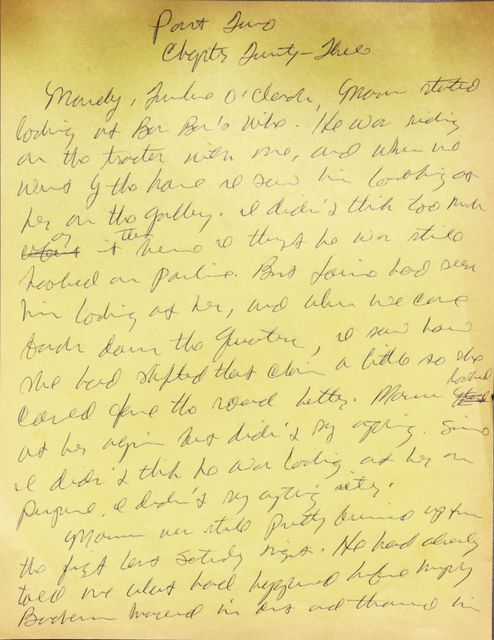 Part Two
Chapter Twenty-Three
Monday, Twelve O'Clock, Marcus started
looking at Bon Bon's wife. He was riding
on the tractor with me, and when we
went by the house I saw him looking at
her on the gallery. I didn't think too much
of it then I thought he was still
hooked on Pauline. But Louise had seen
him looking at her, and when we came
back down the quarter, I saw how
she had shifted that chair a little so she
could face the road better. Marcus looked
at her again but didn't say anything. Since
I didn't think he was looking at her on
purpose, I didn't say anything either.
Marcus was still pretty bruised up from
the fight last Saturday night. He had already
told me what had happened before Murphy
Bacheron moved in and